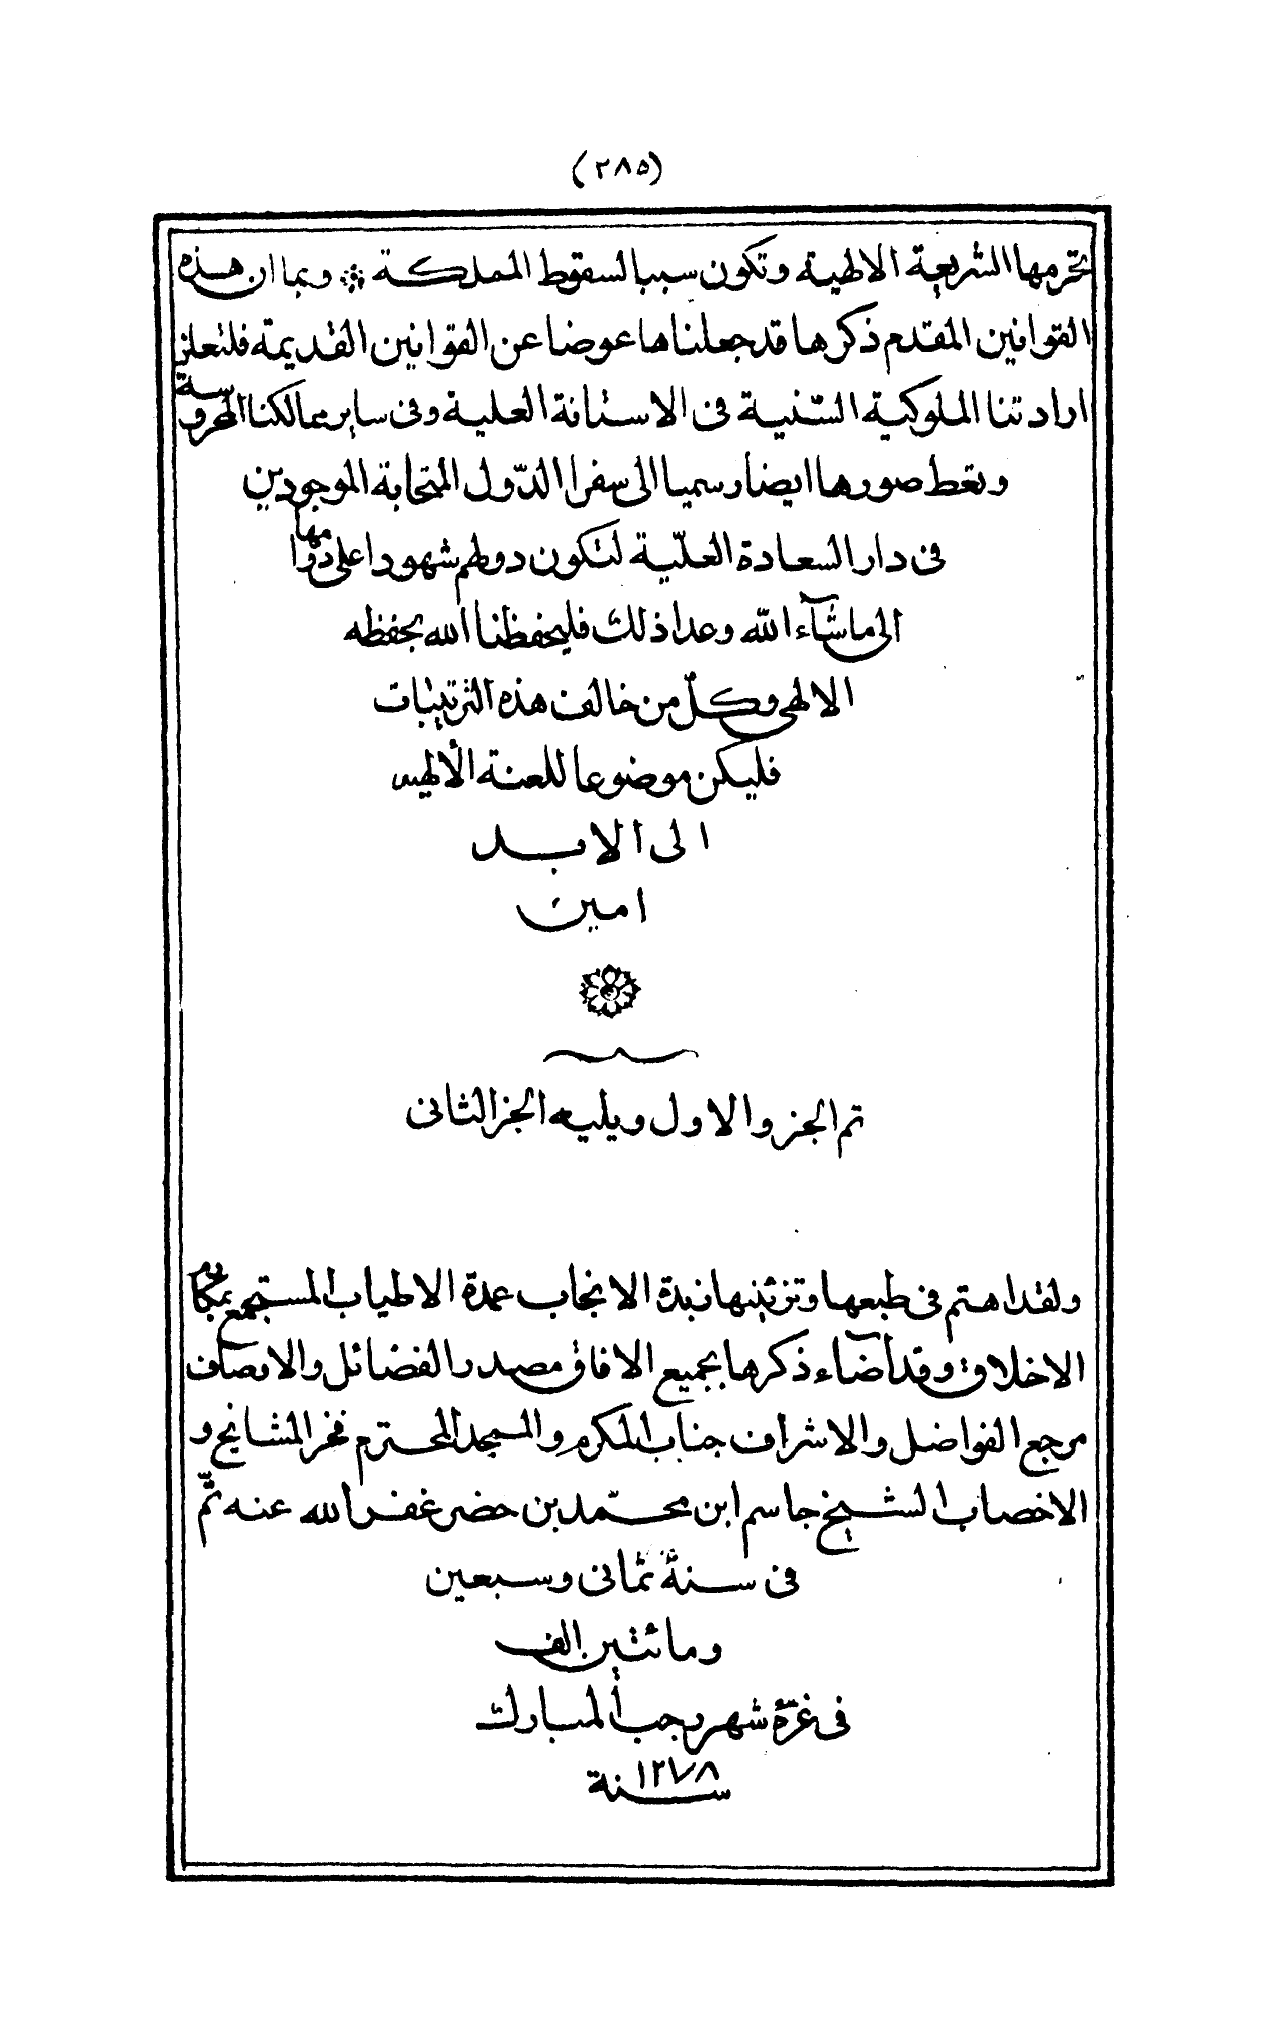 (٢٨٥)
تحرمها الشريعة الالهية وتكون سببا لسقوط المملكة ❊ وبما ان هذه
القوانين المقدم ذكرها قد جعلناها عوضا عن القوانين القديمة فلتعلن
ارادتنا الملوكية السّنية فى الاستانة العلية وفى ساير ممالكنا المحروسة
وتعط صورها ايضا رسميا الى سفرا الدّول المتحابة الموجودين
فى دار السعادة العلّية لتكون دولهم شهودا على دوامها
الى ماشآء الله وعدا ذلك فليحفظنا الله بحفظه
الالهى وكلّ من خالف هذه الترتيبات
فليكن موضوعا للعنة الألهيه
الى الابد
امين
تم الجزو الاول ويليه الجز الثانى
ولقد اهتم فى طبعها وتزئينها نبذة الانجاب عمدة الاطياب المستجمع بمكارم
الاخلاق وقد أضآء ذكرها بجميع الافاق مصدر الفضائل والاوصاف
مرجع الفواضل والاشراف جناب المكرم والمسجد المحترم فخر المشايخ و
الاخصاب الشيخ جاسم ابن محمّد بن حضر غفر الله عنه تمّ
فى سنة ثمانى وسبعين
ومائتين الف
فى غرّة شهر رجب المبارك
سنة ١٢٧٨